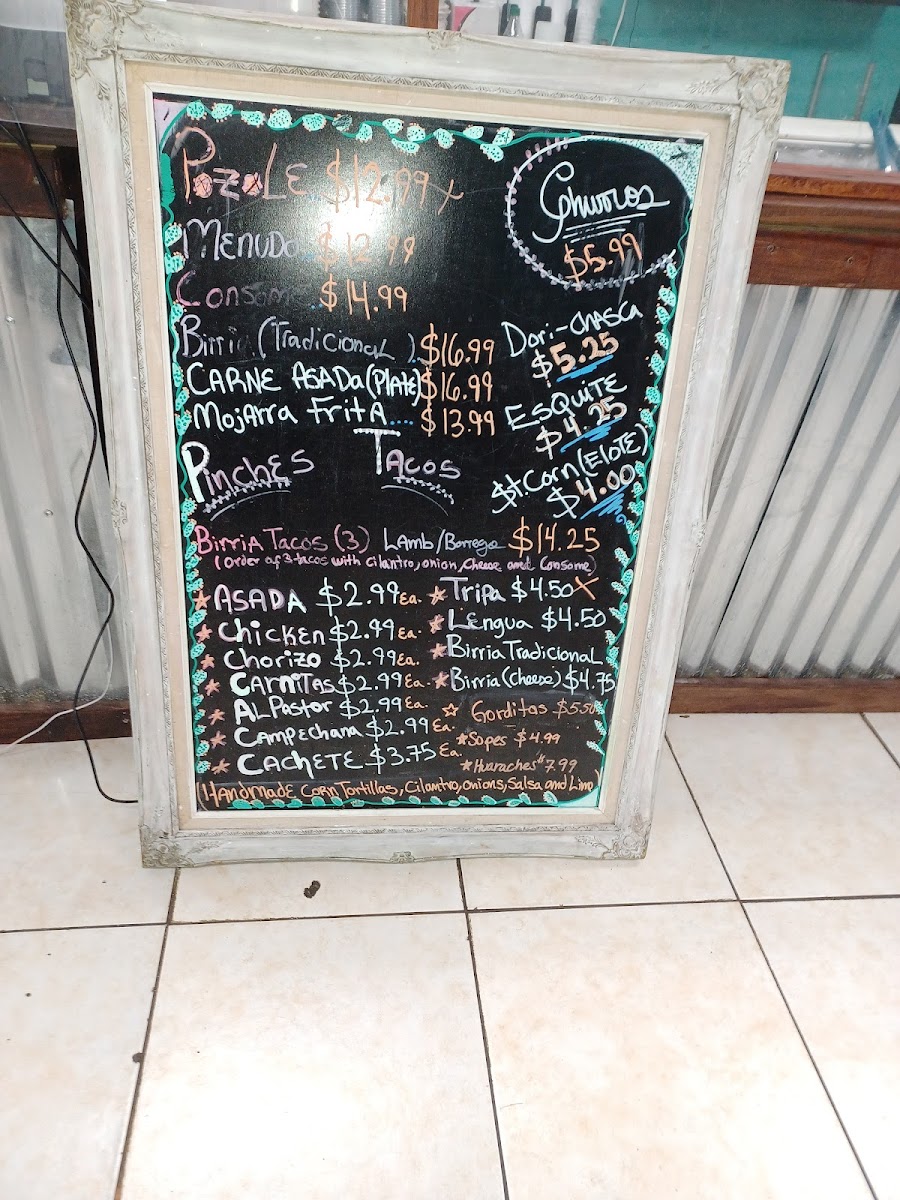 PozoLE $12.99 x
MENUDO $12.99
Consome..$14.99
Birria (TradicionaL) $16.99
CARNE ASADa (PlatE) $16.99
Mojarra FritA.... $13.99
Churros
$5.99
Dori-CHASCA
$5.25
ESQUITE
$4.25
St.Corn(ElOTE)
$4.00
PincHES TACOS
BirriA TACOS (3) LAmb/Borrego $14.25
(order of 3 tacos with cilantro, onion, Cheese and Consome)
ASADA $2.99 Ea.
Chicken $2.99 Ea.
Chorizo $2.99 Ea.
CARNiTas $2.99 Ea.
AL Pastor $2.99 Ea.
CAMPECHANA $2.99 Ea.
CACHETE $3.75 Ea.
Tripa $4.50 X
LENgua $4.50
Birria TradicionaL
Birria (Cheese) $4.75
Gorditas $5.50
Sopes $4.99
Huaraches $7.99
(HANdmAdE CORN Tortillas, Cilantro, onions, Salsa and Lime)